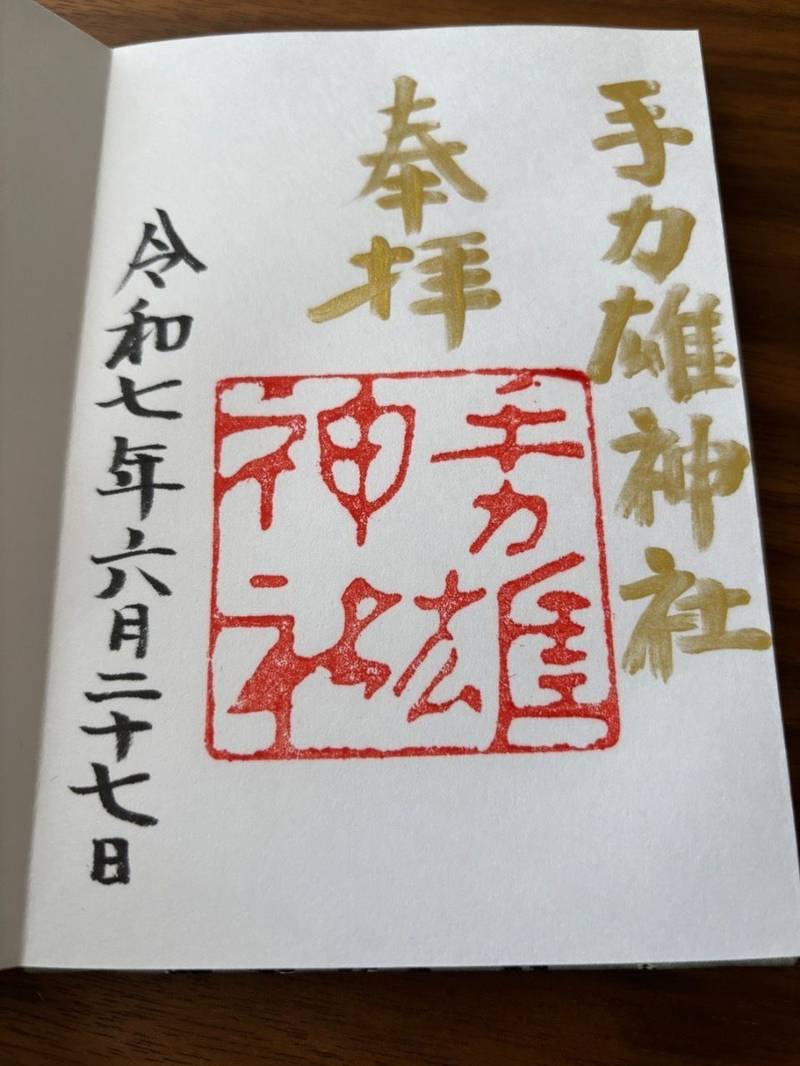 手力雄神社
奉拝
手力雄
神社
令和七年六月二十七日